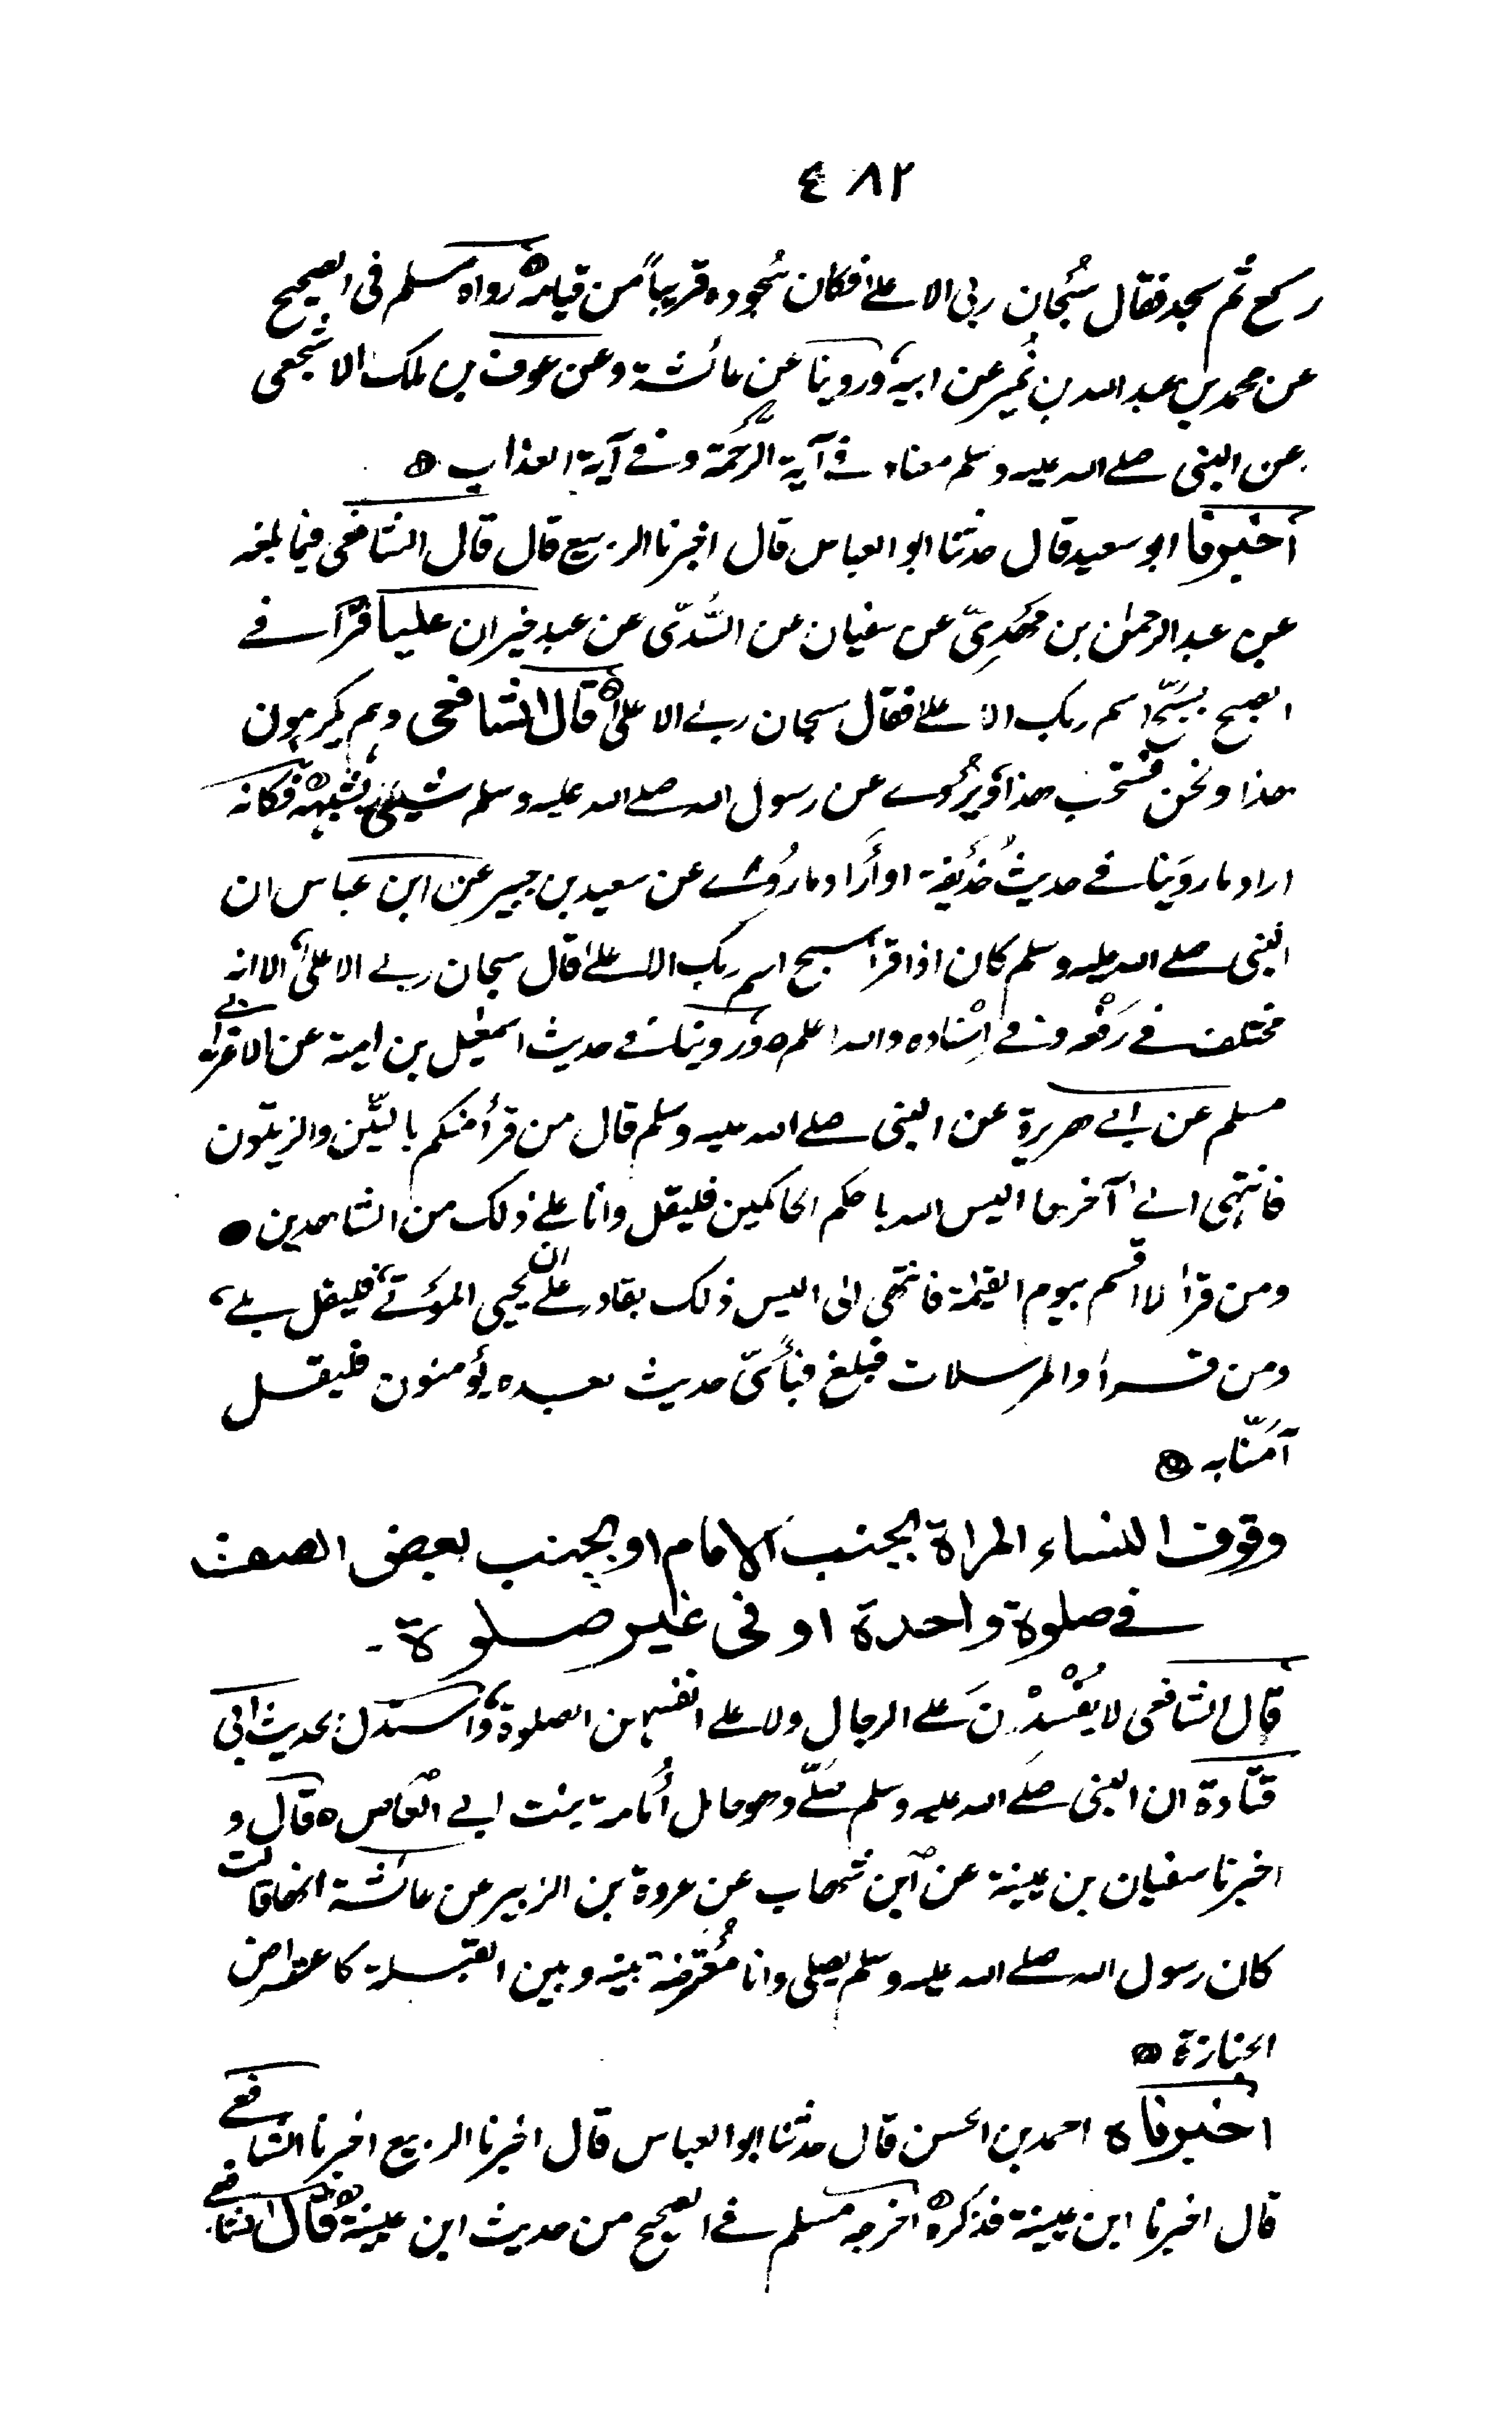 ٤٨٢
ركع ثم سجد فقال سُبحان ربى الاعلى فكان سُجوده قريباً من قيامه رواه مسلم فى الصحيح
عن محمد بن عبد الله بن نُمير عن ابيه، وروينا عن عائشة وعن عوف بن ملك الاشجعى
عن النبى صلى الله عليه وسلم معناه فى آية الرَّحمَة وفى آية العذاب
أخبرنا ابو سعيد قال حدثنا ابو العباس قال اخبرنا الربيع قال قال الشافعى فيما بلغه
عن عبد الرحمٰن بن مَهْدِىّ عن سفيان عن السُّدّى عن عبد خير ان عليا قرأ فى
الصبح بسَبِّح اسم ربك الاعلى فقال سبحان ربى الاعلى قال الشافعى وهم يكرهون
هذا ونحن نستحب هذا ويُروى عن رسول الله صلى الله عليه وسلم شيئ يشبهه فكانه
اراد ما روَينا فى حديث حُذَيفة او أَراد ما رُوى عن سعيد بن جبير عن ابن عباس ان
النبى صلى الله عليه وسلم كان اذا قرأ سبح اسم ربك الاعلى قال سبحان ربى الاعلى، الا انه
مختلف فى رَفعه وفى اِسْناده والله اعلم وروينا فى حديث اسمٰعيل بن امية عن الاعرابى
مسلم عن ابى هريرة عن النبى صلى الله عليه وسلم قال من قرأ منكم بالتِّين والزيتون
فانتهى الى آخرها اليس الله باحكم الحاكمين فليقل وانا على ذلك من الشاهدين
ومن قرأ لا اقسم بيوم القيٰمة فانتهى الى اليس ذلك بقادر على ان يحيى الموتى، فليقل بلى،
ومن قرأ والمرسلات فبلغ فبأىّ حديث بعده يؤمنون فليقل
آمَنّا به
وقوف النساء المراة بجنب الامام او بجنب بعض الصف
فى صلوة واحدة او فى غير صلوة -
قال الشافعى لا يُفْسِدْنَ على الرجال ولا على انفسهن الصلوة، واستدل بحديث ابى
قتادة ان النبى صلى الله عليه وسلم صَلّى وهو حامل أُمامة بنت ابى العَاص قال و
اخبرنا سفيان بن عيينة عن ابن شهاب عن عروة بن الزبير عن عائشة انها قالت
كان رسول الله صلى الله عليه وسلم يصلى وانا مُعْترضة بينه وبين القبلة كاعتراض
الجنازة
اخبرناه احمد بن الحسن قال حدثنا ابو العباس قال اخبرنا الربيع اخبرنا الشافعى
قال اخبرنا ابن عيينة فذكره اخرجه مسلم فى الصحيح من حديث ابن عيينة قال الشافعى